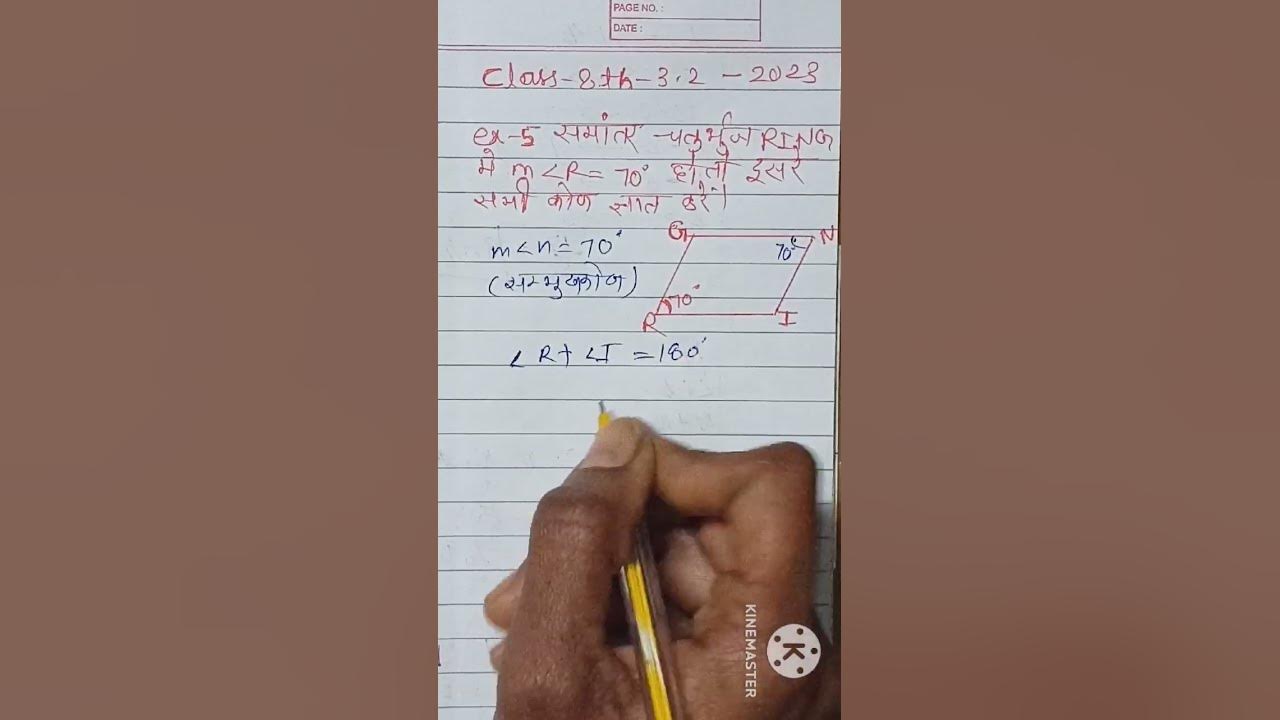 PAGE NO. :
DATE :
Class-8th-3.2 - 2023
ex-5 समांतर चतुर्भुज RING
मे m<R= 70° हो,तो इसके
सभी कोण ज्ञात करें।
G
N
m<n=70°
70°
(सम्मुखकोण)
70°
R
I
<R+<I =180°
KINEMASTER
K